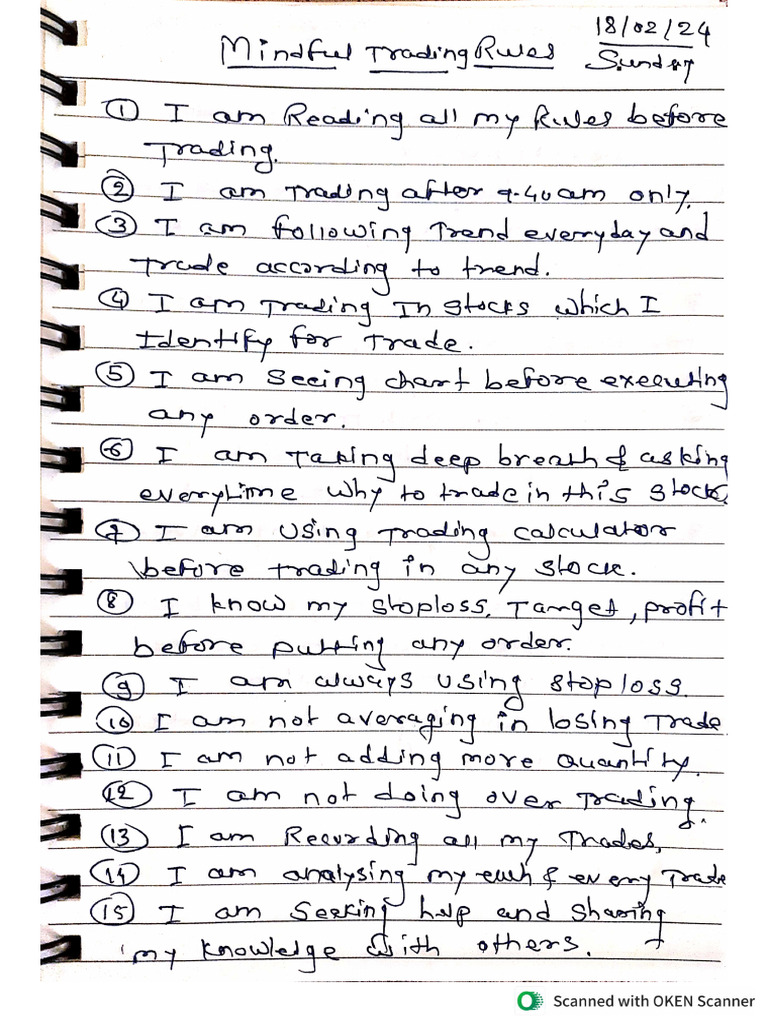 18/02/24
Mindful Trading Rules Sunday
① I am Reading all my Rules before
Trading.
② I am Trading after 9.40am only.
③ I am following Trend everyday and
Trade according to trend.
④ I am Trading In stocks which I
Identify for Trade.
⑤ I am seeing chart before executing
any order.
⑥ I am Taking deep breath & asking
everytime why to trade in this stock.
⑦ I am using Trading calculator
before trading in any stock.
⑧ I know my stoploss, Target, profit
before putting any order.
⑨ I am always using stoploss.
⑩ I am not averaging in losing Trade
⑪ I am not adding more quantity.
⑫ I am not doing over Trading.
⑬ I am Recording all my Trades.
⑭ I am analysing my each & every Trade
⑮ I am seeking help and sharing
my knowledge with others.
Scanned with OKEN Scanner